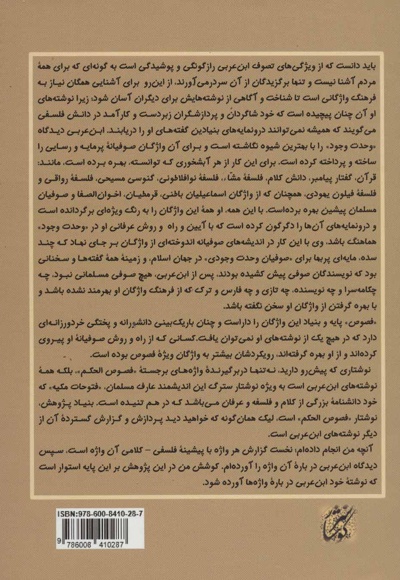 باید دانست که از ویژگی‌های تصوف ابن‌عربی رازگونگی و پوشیدگی است به گونه‌ای که برای همهٔ
مردم آشنا نیست و تنها برگزیدگان از آن سردرمی‌آورند. از این‌رو برای آشنایی همگان نیاز به
فرهنگ واژگانی است تا شناخت و آگاهی از نوشته‌هایش برای دیگران آسان شود؛ زیرا نوشته‌های
او آن چنان پیچیده است که خود شاگردان و پردازشگران زبردست و کارآمد در دانش فلسفی
می‌گویند که همیشه نمی‌توانند درونمایه‌های بنیادین گفته‌های او را دریابند. ابن‌عربی دیدگاه
«وحدت وجود» را با بهترین شیوه نگاشته است و برای آن واژگان صوفیانهٔ پرمایه و رسایی را
ساخته و پرداخته کرده است. برای این کار از هر آبشخوری که توانسته، بهره برده است، مانند:
قرآن، گفتار پیامبر، دانش کلام، فلسفهٔ مشاء، فلسفهٔ نوافلاطونی، گنوسی مسیحی، فلسفهٔ رواقی و
فلسفهٔ فیلون یهودی. همچنان که از واژگان اسماعیلیان باطنی، قرمطیان، اخوان‌الصفا و صوفیان
مسلمان پیشین بهره برده‌است. با این همه، او همهٔ این واژگان را به رنگ ویژه‌ای برگردانده است
و درونمایه‌های آن‌ها را دگرگون کرده است که با آیین و راه و روش عرفانی او در «وحدت وجود»
هماهنگ باشد. وی با این کار در اندیشه‌های صوفیانه اندوخته‌ای از واژگان بر جای نهاد که چند
سده، مایه‌ای پربها برای «صوفیان وحدت وجودی» در جهان اسلام، و زمینهٔ همهٔ گفته‌ها و سخنانی
بود که نویسندگان صوفی پیش کشیده بودند. پس از ابن‌عربی، هیچ صوفی مسلمانی نبود ـ چه
چکامه‌سرا و چه نویسنده، چه تازی و چه فارس و ترک ـ که از فرهنگ واژگان او بهره‌مند نشده باشد و
با بهره گرفتن از واژگان او سخن نگفته باشد.
«فصوص» پایه و بنیاد این واژگان را داراست و چنان باریک‌بینی دانشورانه و پختگی خردورزانه‌ای
دارد که در هیچ یک از نوشته‌های او نمی‌توان یافت. کسانی که از راه و روش صوفیانهٔ او پیروی
کرده‌اند و از او بهره گرفته‌اند، رویکردشان بیشتر به واژگان ویژهٔ فصوص بوده است.
نوشتاری که پیش‌رو دارید، نه‌تنها دربرگیرندهٔ واژه‌های برجستهٔ «فصوص الحکم»، بلکه همهٔ
نوشته‌های ابن‌عربی است به ویژه نوشتار سترگ این اندیشمند عارف مسلمان، «فتوحات مکیه» که
خود دانشنامهٔ بزرگی از کلام و فلسفه و عرفان می‌باشد که در هم تنیده است. بنیاد پژوهش،
نوشتار «فصوص الحکم» است، لیک همان‌گونه که خواهید دید پردازش و گزارش گستردهٔ آن از
دیگر نوشته‌های ابن‌عربی است.
آنچه من انجام داده‌ام: نخست گزارش هر واژه با پیشینهٔ فلسفی - کلامی آن واژه است. سپس
دیدگاه ابن‌عربی در بارهٔ آن واژه را آورده‌ام. کوشش من در این پژوهش بر این پایه استوار است
که نوشتهٔ خود ابن‌عربی در بارهٔ واژه‌ها آورده شود.
ISBN: 978-600-8410-28-7
9 786008 410287